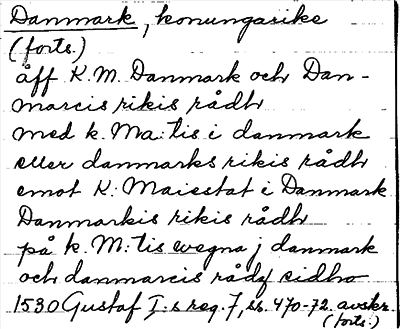 Danmark, konungarike
(forts.)
åff K. M. Danmark och Dan-
marcis rikis rådh
med k. Ma:tis i danmark
eller danmarks rikis rådh
emot K: Maiestat i Danmark
Danmarkis rikis rådh
på k. M:tis wegna j danmark
och danmarcis rådz sidho
1530 Gustaf I:s reg. 7, ss. 470-72. avskr.
(forts.)